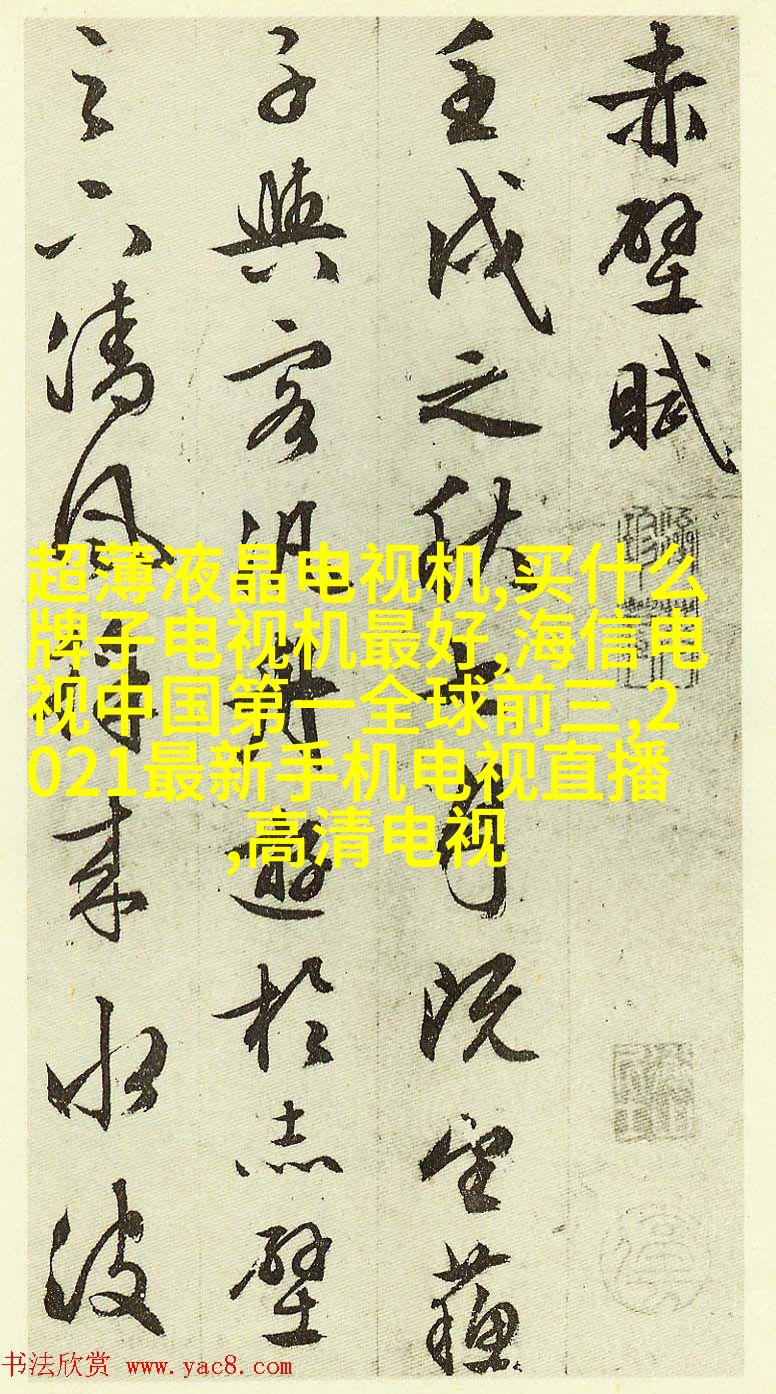 赤壁賦
壬戌之秋七月既望蘇
子與客汎舟遊於赤壁
之下清風徐來水波
超薄液晶电视机,买什么
牌子电视机最好,海信电
视中国第一全球前三,2
021最新手机电视直播
,高清电视
书法欣赏 www.yac8.com